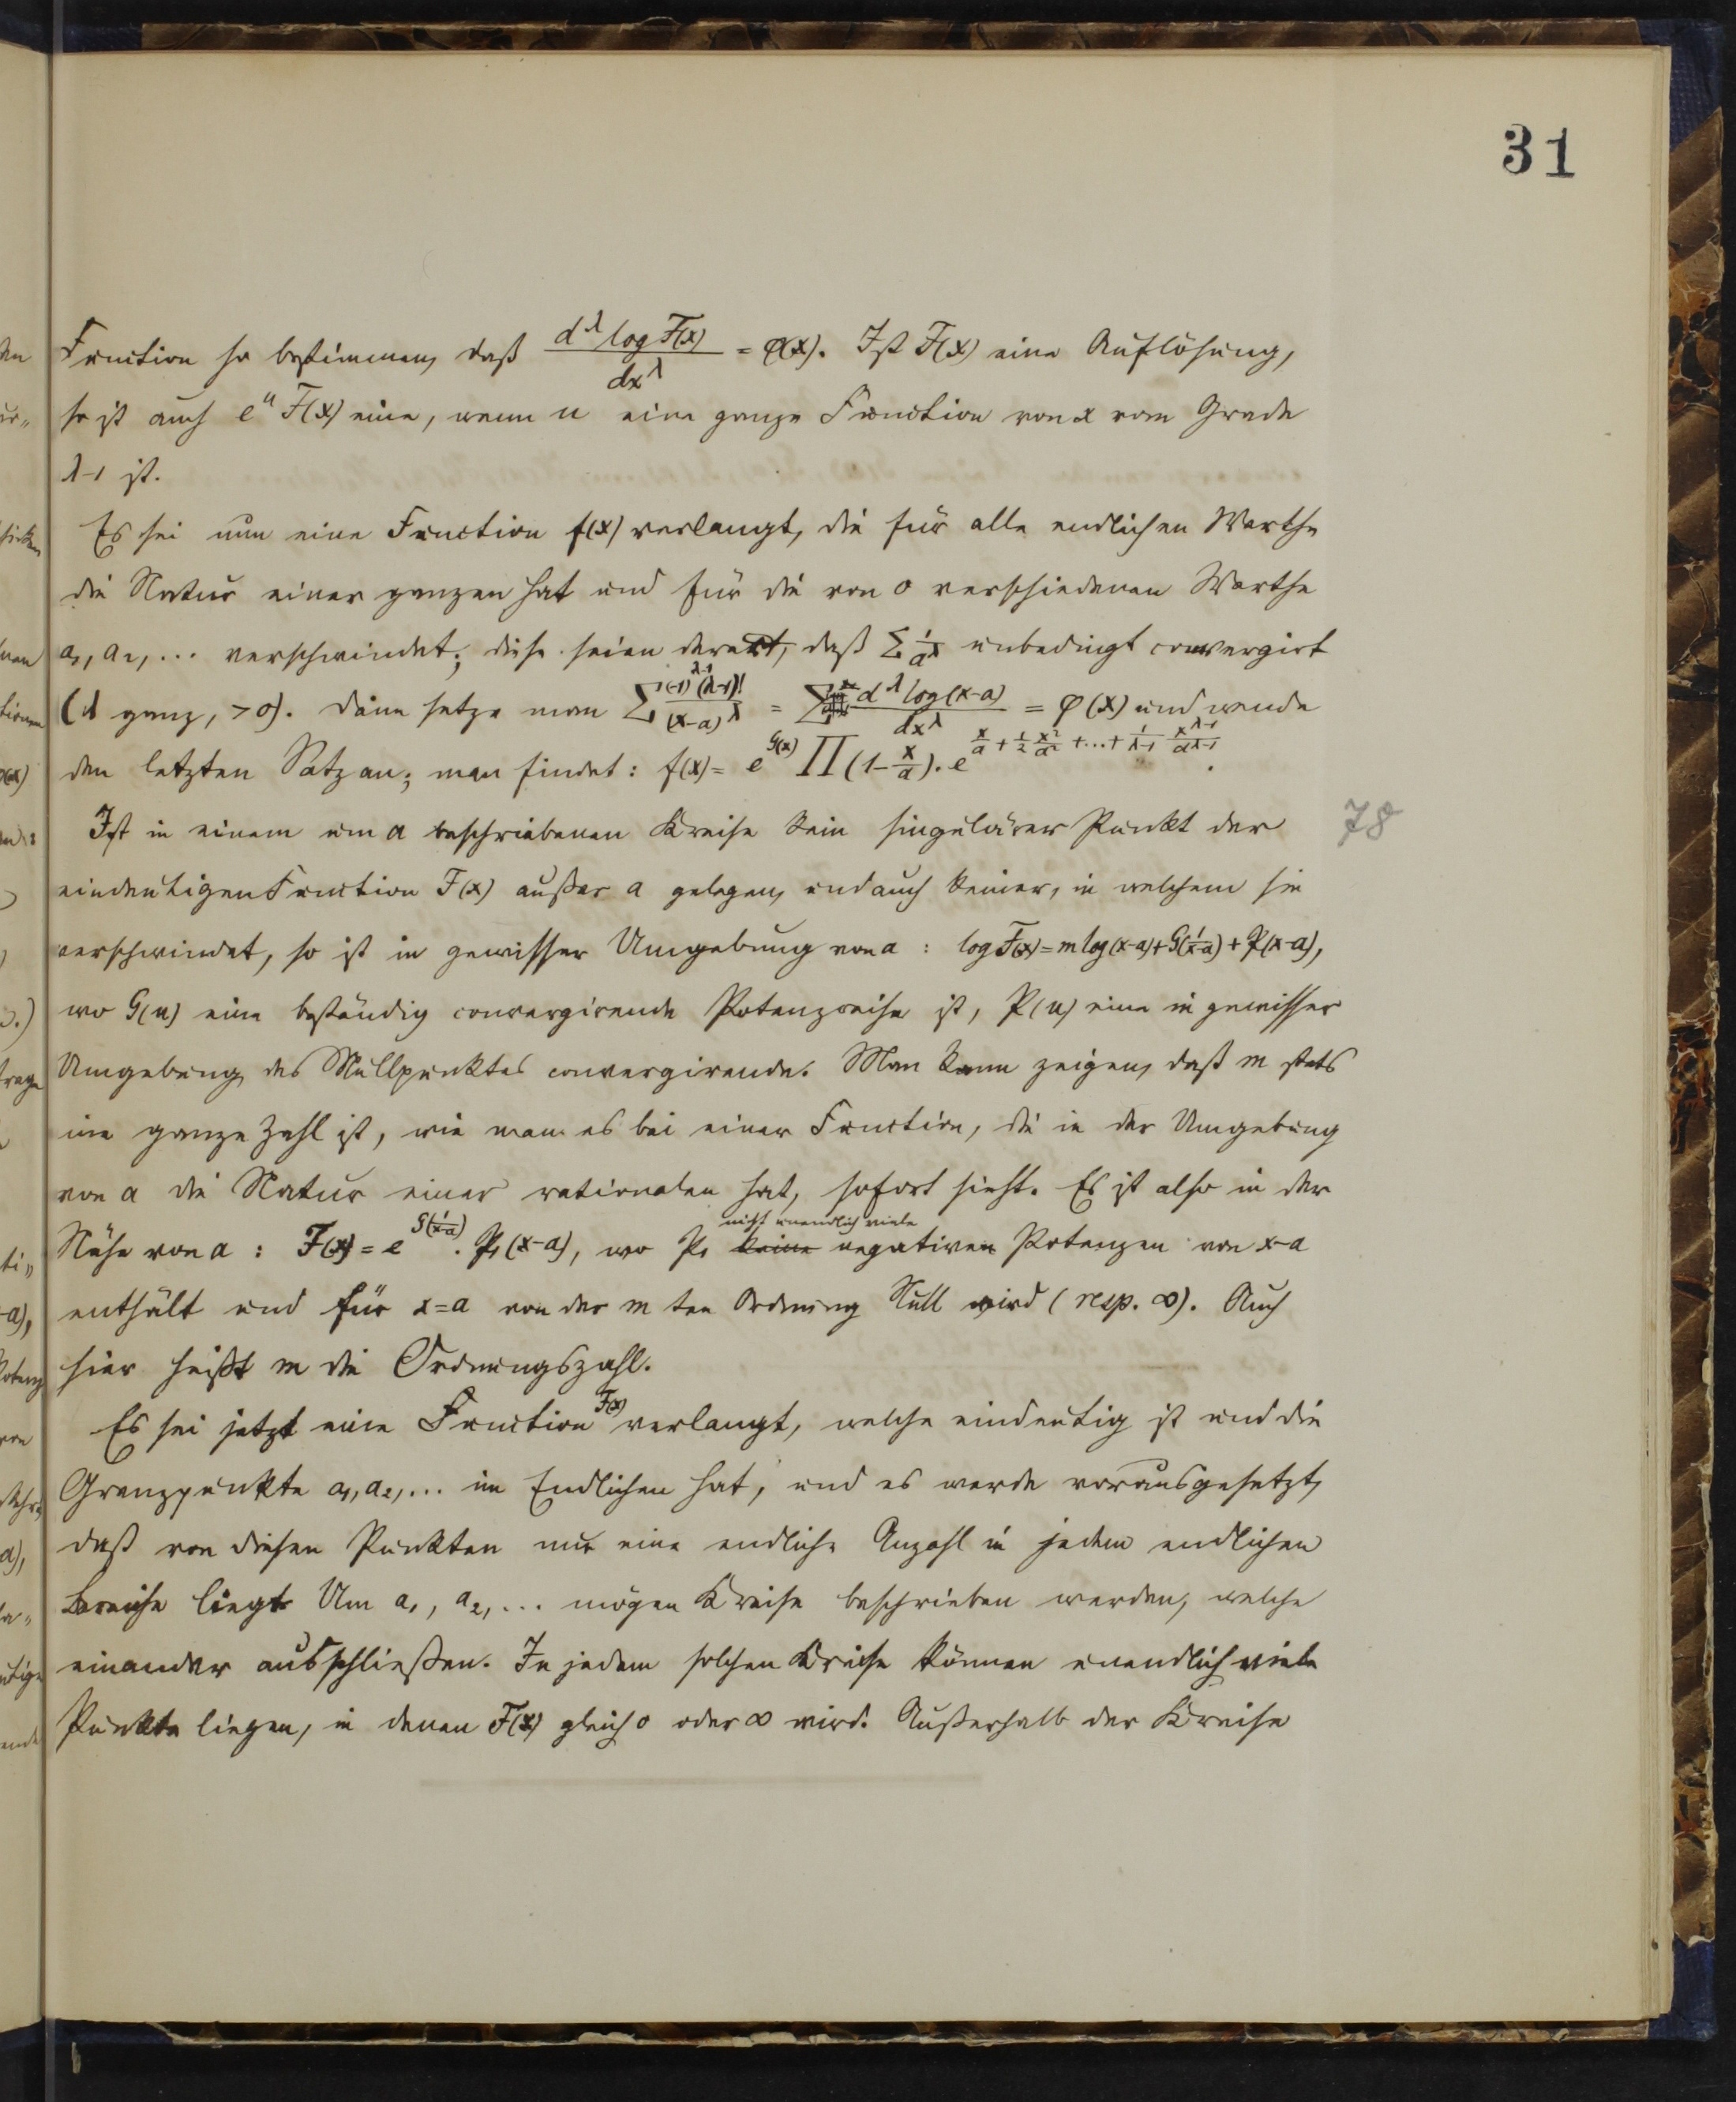 31
Function so bestimmen, daß d^λ log F(x) / dx^λ = φ(x). Ist F(x) eine Auflösung,
so ist auch e^u F(x) eine, wenn u eine ganze Function von x vom Grade
λ-1 ist.
Es sei nun eine Function f(x) verlangt, die für alle endlichen Werthe
die Natur einer ganzen hat und für die von 0 verschiedenen Werthe
a₁, a₂, ... verschwindet; diese seien derart, daß Σ 1/a^λ unbedingt convergirt
(λ ganz, >0). Dann setze man Σ (-1)^{λ-1} (λ-1)! / (x-a)^λ = Σ d^λ log(x-a) / dx^λ = φ(x) und wende
den letzten Satz an; man findet: f(x) = e^{G(x)} Π (1 - x/a) . e^{x/a + 1/2 x²/a² + ... + 1/(λ-1) x^{λ-1}/a^{λ-1}}.
Ist in einem um a beschriebenen Kreise kein singulärer Punkt der
78
eindeutigen Function F(x) außer a gelegen, und auch keiner, in welchem sie
verschwindet, so ist in gewisser Umgebung von a : log F(x) = m log(x-a) + G(1/(x-a)) + P(x-a),
wo G(u) eine beständig convergirende Potenzreihe ist, P(u) eine in gewisser
Umgebung des Nullpunktes convergirende. Man kann zeigen, daß m stets
eine ganze Zahl ist, wie man es bei einer Function, die in der Umgebung
von a die Natur einer rationalen hat, sofort sieht. Es ist also in der
Nähe von a : F(x) = e^{G(1/(x-a))} . P₁(x-a), wo P₁ keine nicht unendlich viele negativen Potenzen von x-a
enthält und für x=a von der m ten Ordnung Null wird (resp. ∞). Auch
hier heißt m die Ordnungszahl.
Es sei jetzt eine Function F(x) verlangt, welche eindeutig ist und die
Grenzpunkte a₁, a₂, ... im Endlichen hat, und es werde vorausgesetzt,
daß von diesen Punkten nur eine endliche Anzahl in jedem endlichen
Bereiche liegt. Um a₁, a₂, ... mögen Kreise beschrieben werden, welche
einander ausschließen. In jedem solchen Kreise können unendlich viele
Punkte liegen, in denen F(x) gleich 0 oder ∞ wird. Außerhalb der Kreise